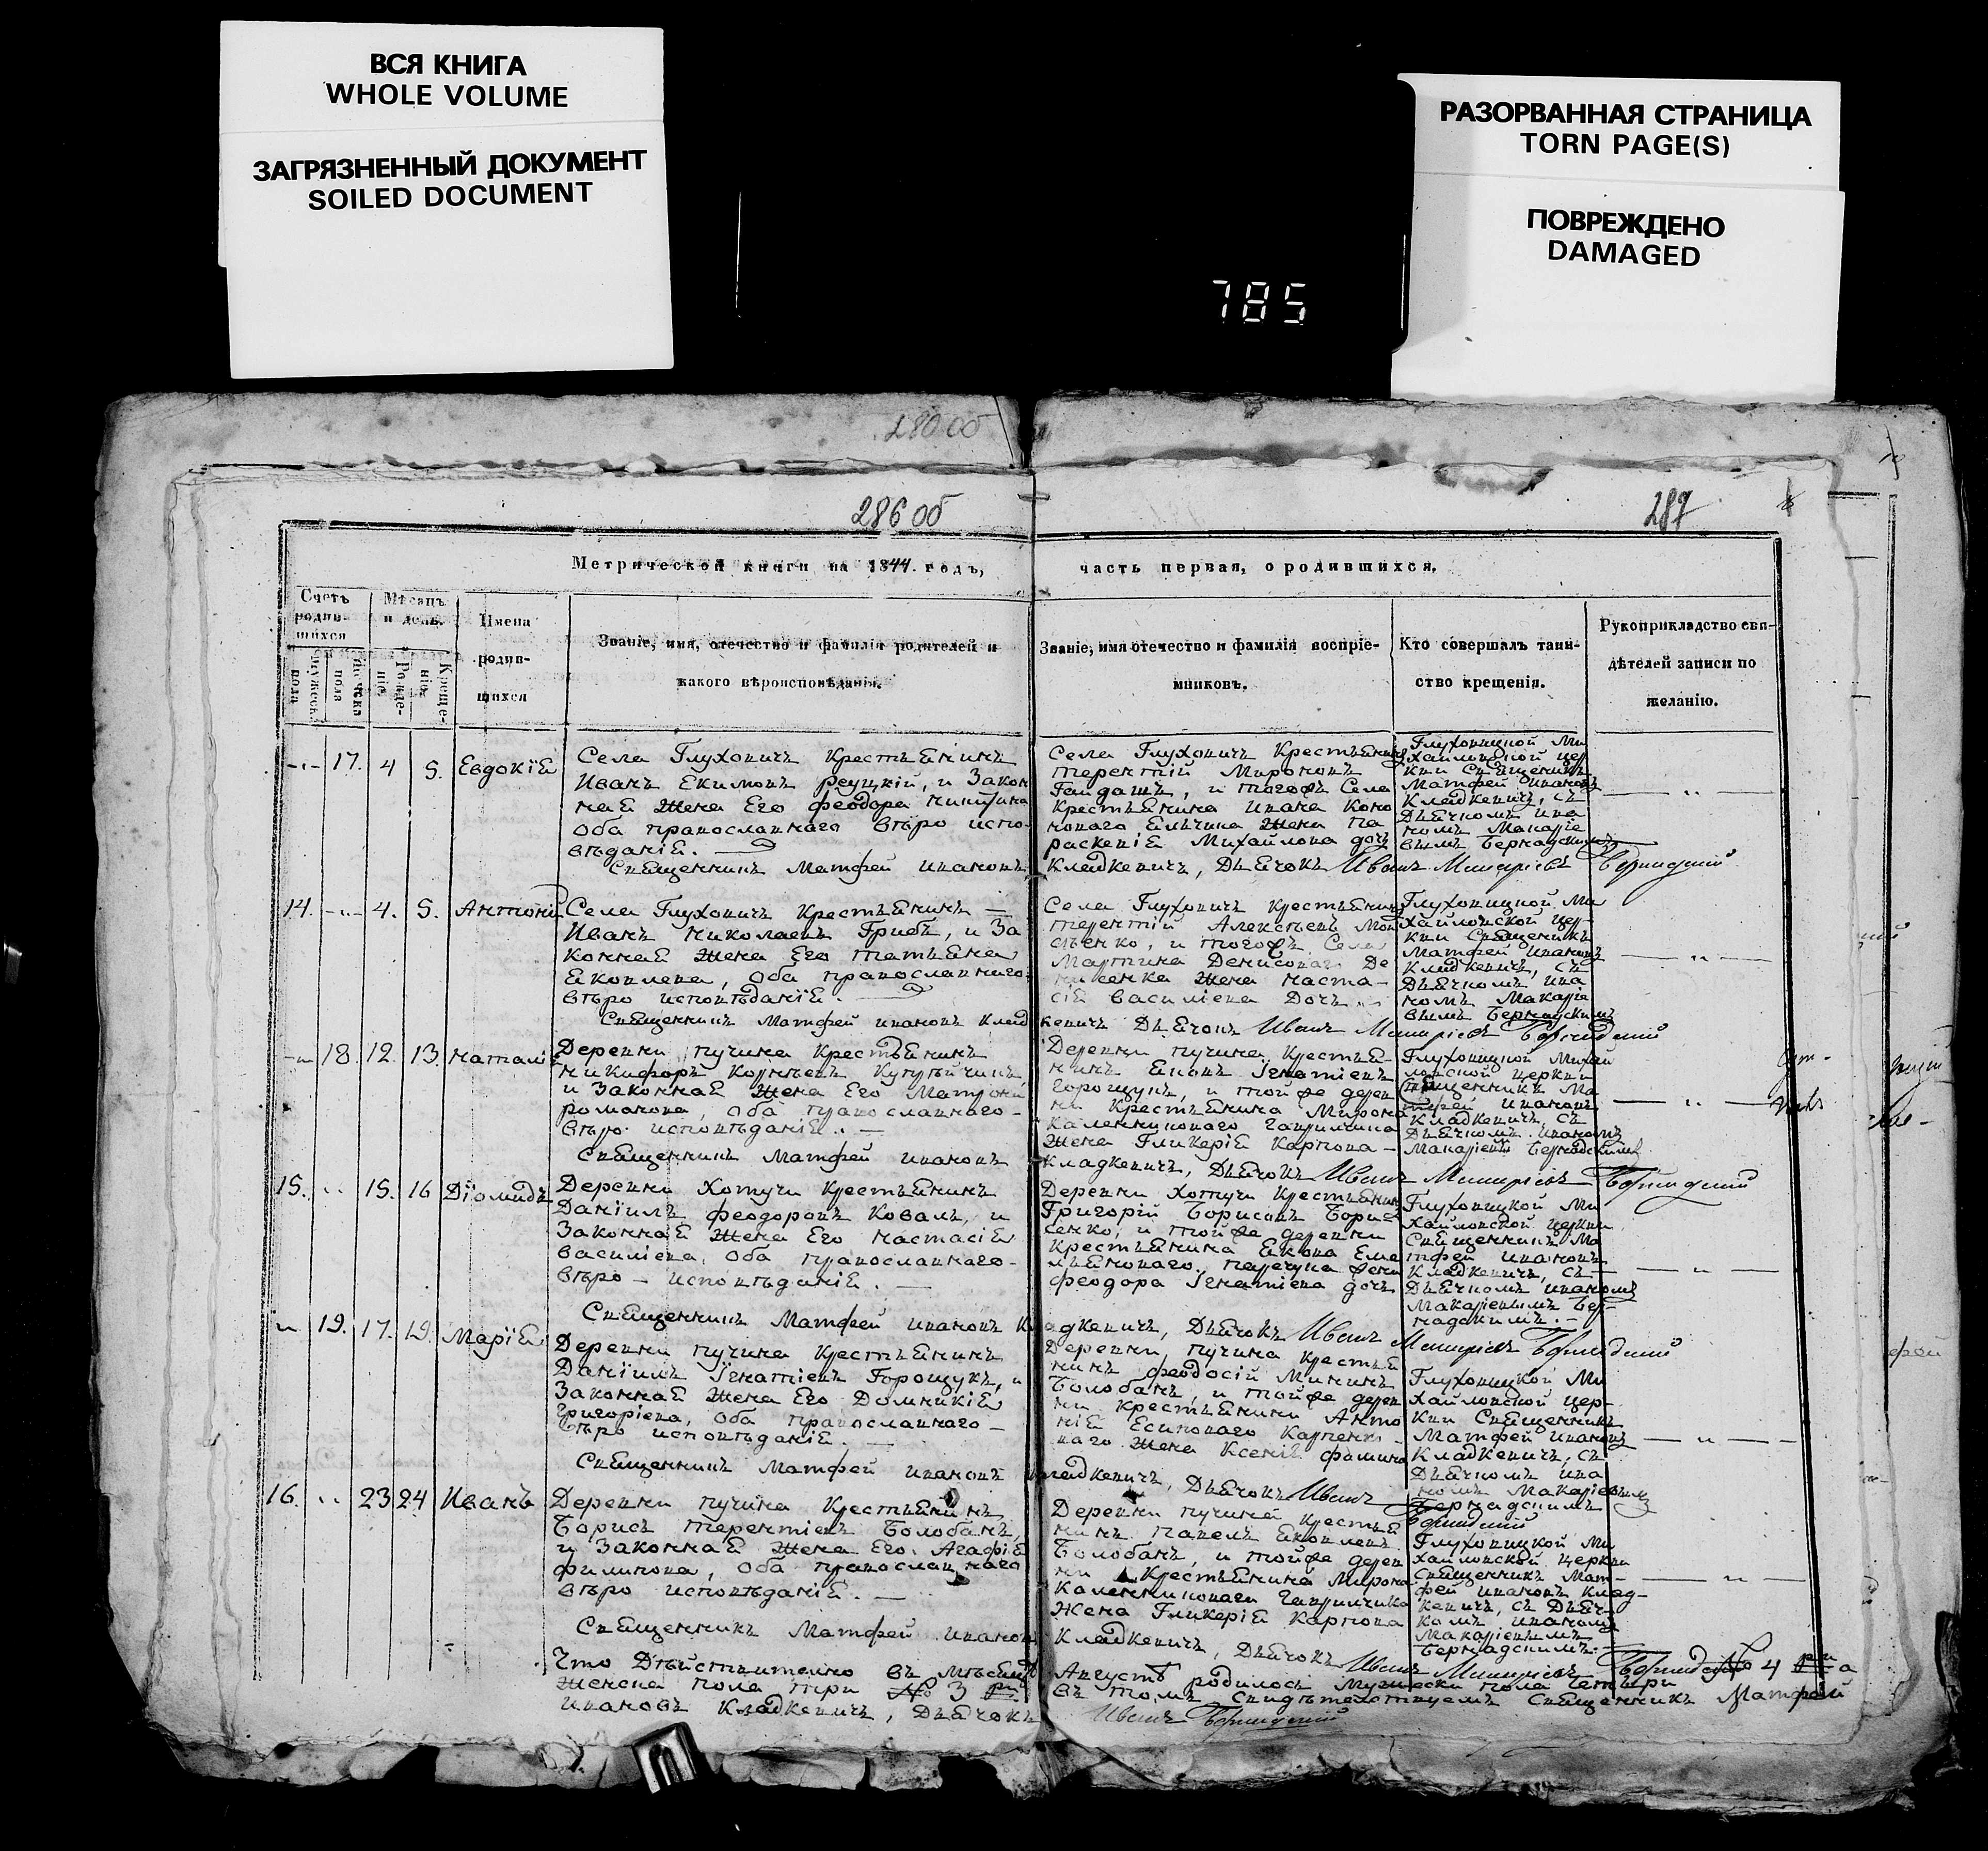 ВСЯ КНИГА
WHOLE VOLUME
ЗАГРЯЗНЕННЫЙ ДОКУМЕНТ
SOILED DOCUMENT
РАЗОРВАННАЯ СТРАНИЦА
TORN PAGE(S)
ПОВРЕЖДЕНО
DAMAGED
785
280 об
286 об
287
Метрической книги на 1844. годъ,
часть первая, о родившихся.
Счетъ
родив-
шихся
Мѣсяцъ
и день.
мужеск.
пола
женска
пола
Рожде-
нія
Креще-
нія
Имена
родив-
шихся
Званіе, имя, отечество и фамилія родителей и
какого вѣроисповѣданія.
Званіе, имя отечество и фамилія воспріе-
мниковъ.
Кто совершалъ таин-
ство крещенія.
Рукоприкладство сви-
дѣтелей записи по
желанію.
17. 4 5. Евдокія
Села Глуховичъ Крестьянинъ
Иванъ Екимовъ реуцкій, и Закон
ная Жена Его феодора никитина
Оба православнаго вѣро испо-
вѣданія.
Священникъ Матфей ивановъ
Села Глуховичъ Крестьянинъ
терентій Мироновъ
Гандашъ, и тогожъ Села
Крестьянина ивана Коно
новаго Ельчица Жена па
раскевія Михайлова дочь
Кладкевичъ, Дьячокъ Иванъ Макаріевъ Бернадскій
Глуховицкой Ми
хайловской цер
кви Священникъ
Матфей ивановъ
Кладкевичъ, съ
Дьячкомъ ива
номъ Макаріе
вымъ Бернадскимъ
14. 4. 5. Антоній
Села Глуховичъ Крестьянинъ
Иванъ николаевъ Грибъ, и За
конная Жена Его татьяна
Яковлева, Оба православнаго
вѣро исповѣданія.
Священникъ Матфей ивановъ Клад
Села Глуховичъ Крестьянинъ
терентій Алексѣевъ Мои
сѣенко, и тогожъ Села
Мартина Денисоваго Де
нисенка Жена наста-
сія василіева Дочь
кевичъ Дьячокъ Иванъ Макаріевъ Бернадскій
Глуховицкой Ми
хайловской цер-
кви Священникъ
Матфей ивановъ
Кладкевичъ, съ
Дьячкомъ ива
номъ Макаріе
вымъ Бернадскимъ
18. 12. 13. наталія
Деревни пучина Крестьянинъ
никифоръ Корнѣевъ
и Законная Жена Его Матрона
романова, Оба православнаго
вѣро исповѣданія.
Священникъ Матфей ивановъ
Деревни пучина, Крестья-
нинъ Яковъ Игнатіевъ
горощукъ, и тойже дерев
ни Крестьянина Мирона
Калениковаго гаврильчика
Жена Гликерія Карпова
Кладкевичъ, Дьячокъ Иванъ Макаріевъ Бернадскій
Глуховицкой Михай
ловской церкви
Священникъ Ма
тфей ивановъ
Кладкевичъ съ
Дьячкомъ ивановъ
Макаріевъ Бернадскимъ
15. 15. 16 Діомидъ
Деревни Хотучи Крестьянинъ
Даніилъ феодоровъ Коваль, и
Законная Жена Его настасія
василіева, Оба православнаго
вѣро исповѣданія.
Священникъ Матфей ивановъ Кл
Деревни Хотучи Крестьянинъ
Григорій Борисовъ Бори
сенко, и тойже деревни
Крестьянина Якова Еме
льяноваго Жена
феодора Игнатіева дочь
адкевичъ, Дьячокъ Иванъ Макаріевъ Бернадскій
Глуховицкой Ми
хайловской церкви
Священникъ Ма
тфей ивановъ
Кладкевичъ, съ
Дьячкомъ ивановъ
Макаріевымъ Бер-
надскимъ.
19. 17. 19. Марія
Деревни пучина Крестьянинъ
Даніилъ Игнатіевъ Горощукъ, и
Законная Жена Его Домникія
григоріева, Оба православнаго
вѣро исповѣданія.
Священникъ Матфей ивановъ
Деревни пучина Крестья
нинъ феодосій Мининъ
Болобанъ, и тойже дерев
ни крестьянина Анто
нія Есиповаго Карпенко
ваго Жена Ксенія фомина
Кладкевичъ, Дьячокъ Иванъ
Бернадскій
Глуховицкой Ми
хайловской цер-
кви Священникъ
Матфей ивановъ
Кладкевичъ, съ
Дьячкомъ ива
номъ Макаріевымъ
Бернадскимъ
16. 23 24 Иванъ
Деревни пучина Крестьянинъ
Борисъ терентіевъ Болобанъ,
и Законная Жена Его Агафія
филипова, Оба православнаго
вѣро исповѣданія.
Священникъ Матфей ивановъ
Деревни пучина Крестья
нинъ павелъ Яковлевъ
Болобанъ, и тойже дерев
ни Крестьянина Мирона
Калениковаги Гаврильчика
Жена Гликерія Карпова
Кладкевичъ, Дьячокъ Иванъ Макаріевъ Бернадскій
Глуховицкой Ми
хайловской церкви
Священникъ Мат-
фей ивановъ Клад-
кевичъ, съ Дьяч-
комъ ивановъ
Макаріевымъ
Бернадскимъ
Что Дѣйствительно въ мѣсяцѣ Августѣ родилось Мужеска пола четыри № 4 а
Женска пола три № 3 въ томъ Свидѣтелствуемъ Священникъ Матфей
Ивановъ Кладкевичъ, Дьячокъ Иванъ Бернадскій